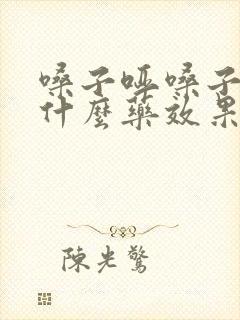 嗓子哑嗓子
什麼藥效果
陳光驚